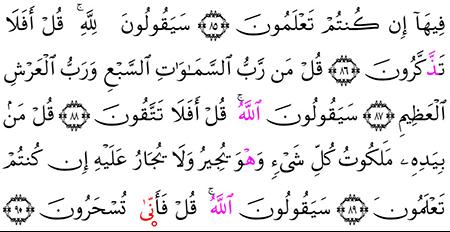 فِيهَآ إِن كُنتُمْ تَعْلَمُونَ ﴿٨٥﴾ سَيَقُولُونَ لِلَّهِ ۚ قُلْ أَفَلَا
تَذَّكَّرُونَ ﴿٨٦﴾ قُلْ مَن رَّبُّ ٱلسَّمَٰوَٰتِ ٱلسَّبْعِ وَرَبُّ ٱلْعَرْشِ
ٱلْعَظِيمِ ﴿٨٧﴾ سَيَقُولُونَ ٱللَّهُ ۚ قُلْ أَفَلَا تَتَّقُونَ ﴿٨٨﴾ قُلْ مَنۢ
بِيَدِهِۦ مَلَكُوتُ كُلِّ شَىْءٍ وَهْوَ يُجِيرُ وَلَا يُجَارُ عَلَيْهِ إِن كُنتُمْ
تَعْلَمُونَ ﴿٨٩﴾ سَيَقُولُونَ ٱللَّهُ ۚ قُلْ فَأَنّٜىٰ تُسْحَرُونَ ﴿٩٠﴾